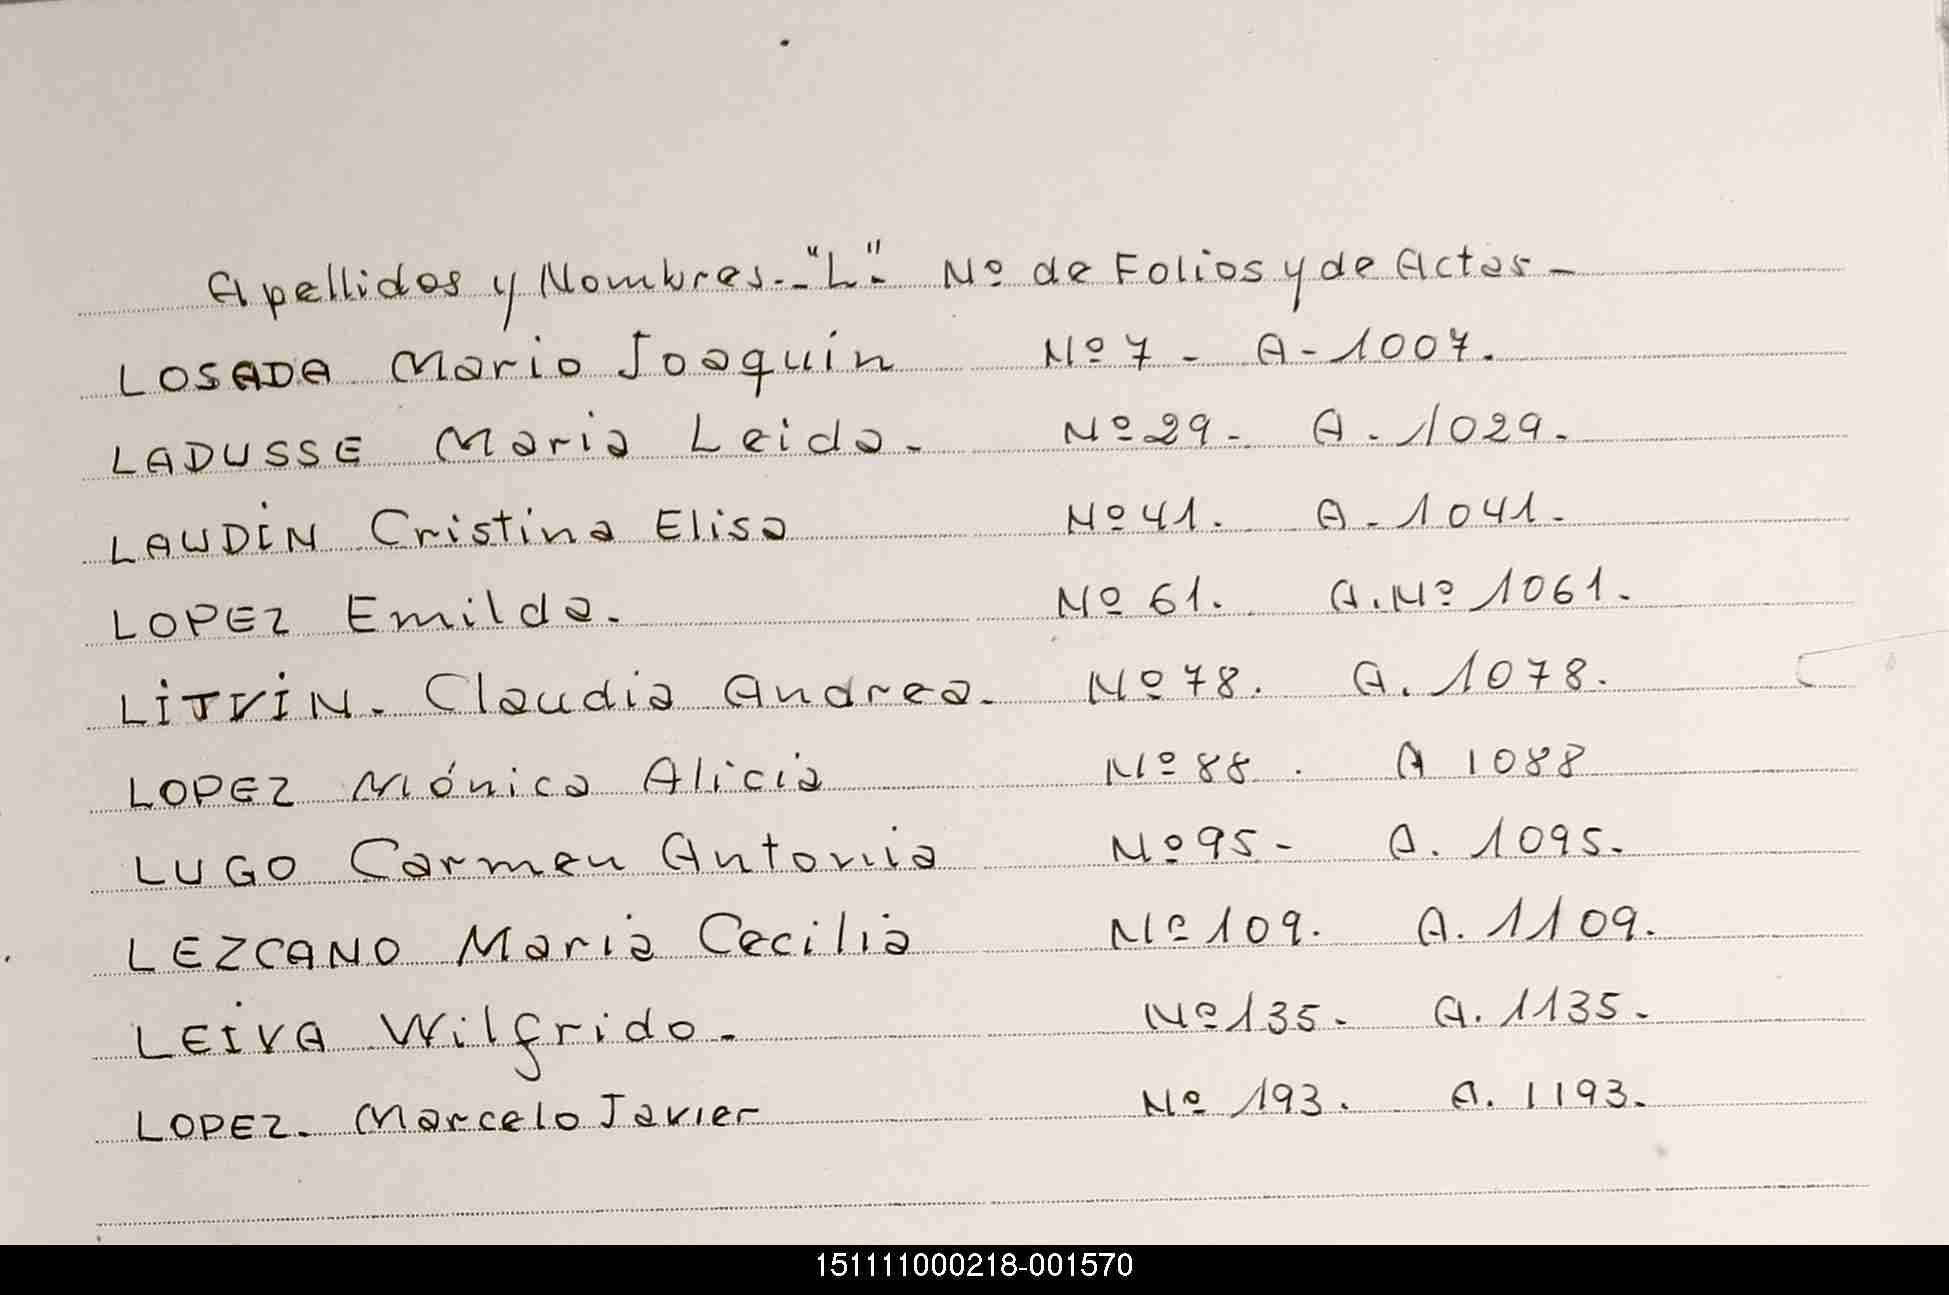 Apellidos y Nombres.-"L"- Nº de Folios y de Actas-
LOSADA Mario Joaquin Nº 7 - A - 1007.
LADUSSE Maria Leida. Nº 29. A. 1029.
LAUDIN Cristina Elisa Nº 41. A. 1041.
LOPEZ Emilda. Nº 61. A. Nº 1061.
LITVIN. Claudia Andrea. Nº 78. A. 1078.
LOPEZ Mónica Alicia Nº 88. A 1088
LUGO Carmen Antonia Nº 95- A. 1095.
LEZCANO Maria Cecilia Nº 109. A. 1109.
LEIVA Wilfrido. Nº 135. A. 1135.
LOPEZ. Marcelo Javier Nº 193. A. 1193.
151111000218-001570